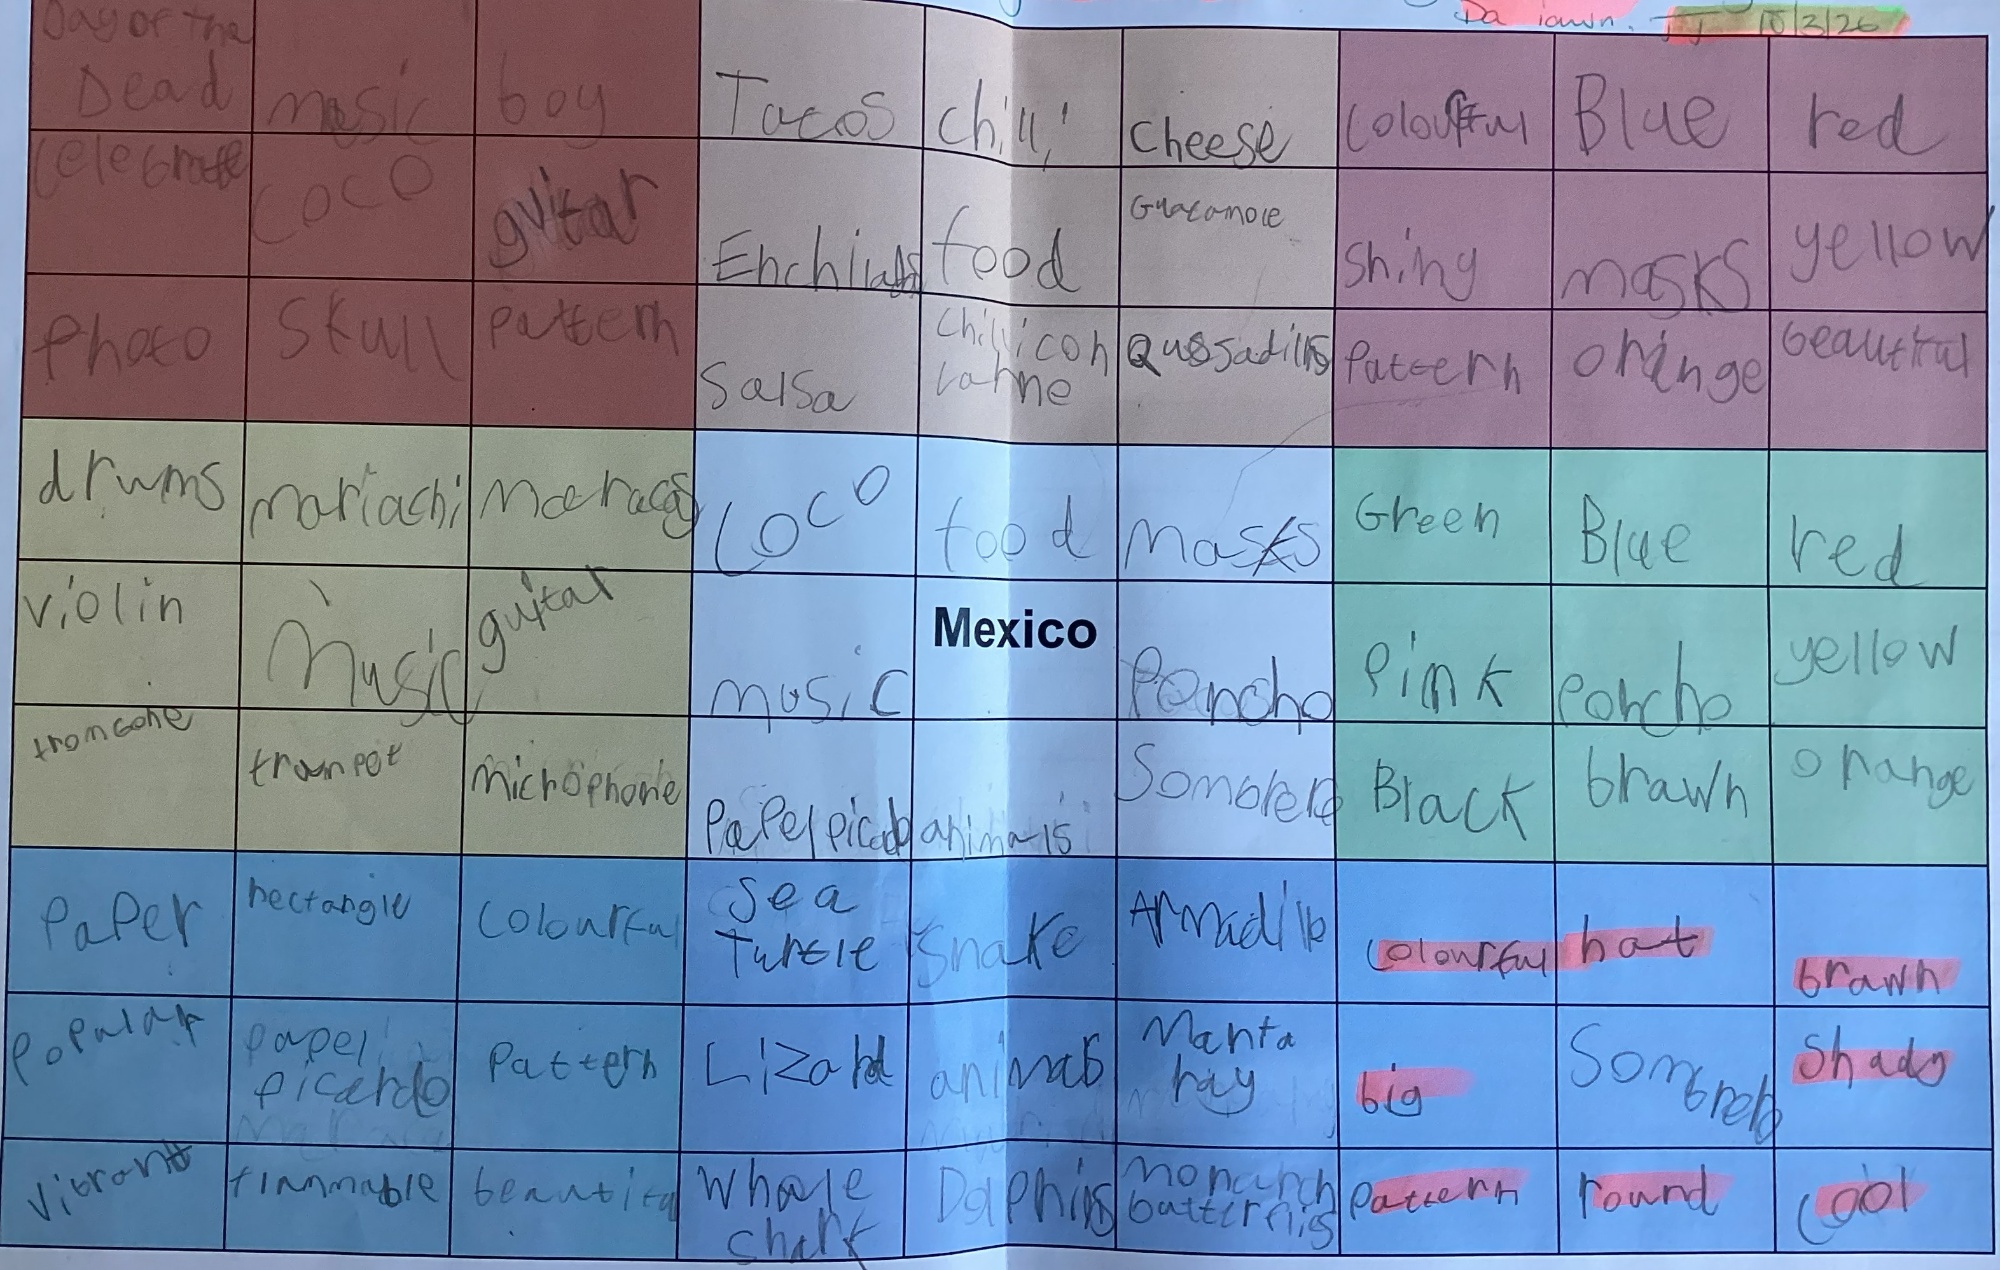 Da iawn. JJ 10/3/26
Day of the Dead music boy Tacos chilli cheese Colourful Blue red
Celebrate coco guitar Enchiladas food Guacamole Shiny masks yellow
Photo Skull pattern Salsa Chilli con carne Quesadillas Pattern orange beautiful
drums mariachi Maracas Coco food Masks Green Blue red
violin music guitar music Mexico Poncho Pink Poncho yellow
trombone trumpet microphone Papel picado animals Sombrero Black brawn orange
Paper rectangle Colourful Sea Turtle Snake Armadillo Colourful hat brawn
Popular papel picardo Pattern Lizard animals Manta ray big Sombrero Shady
Vibrant flammable beautiful Whale shark Dolphins monarch butterflies pattern round Cool